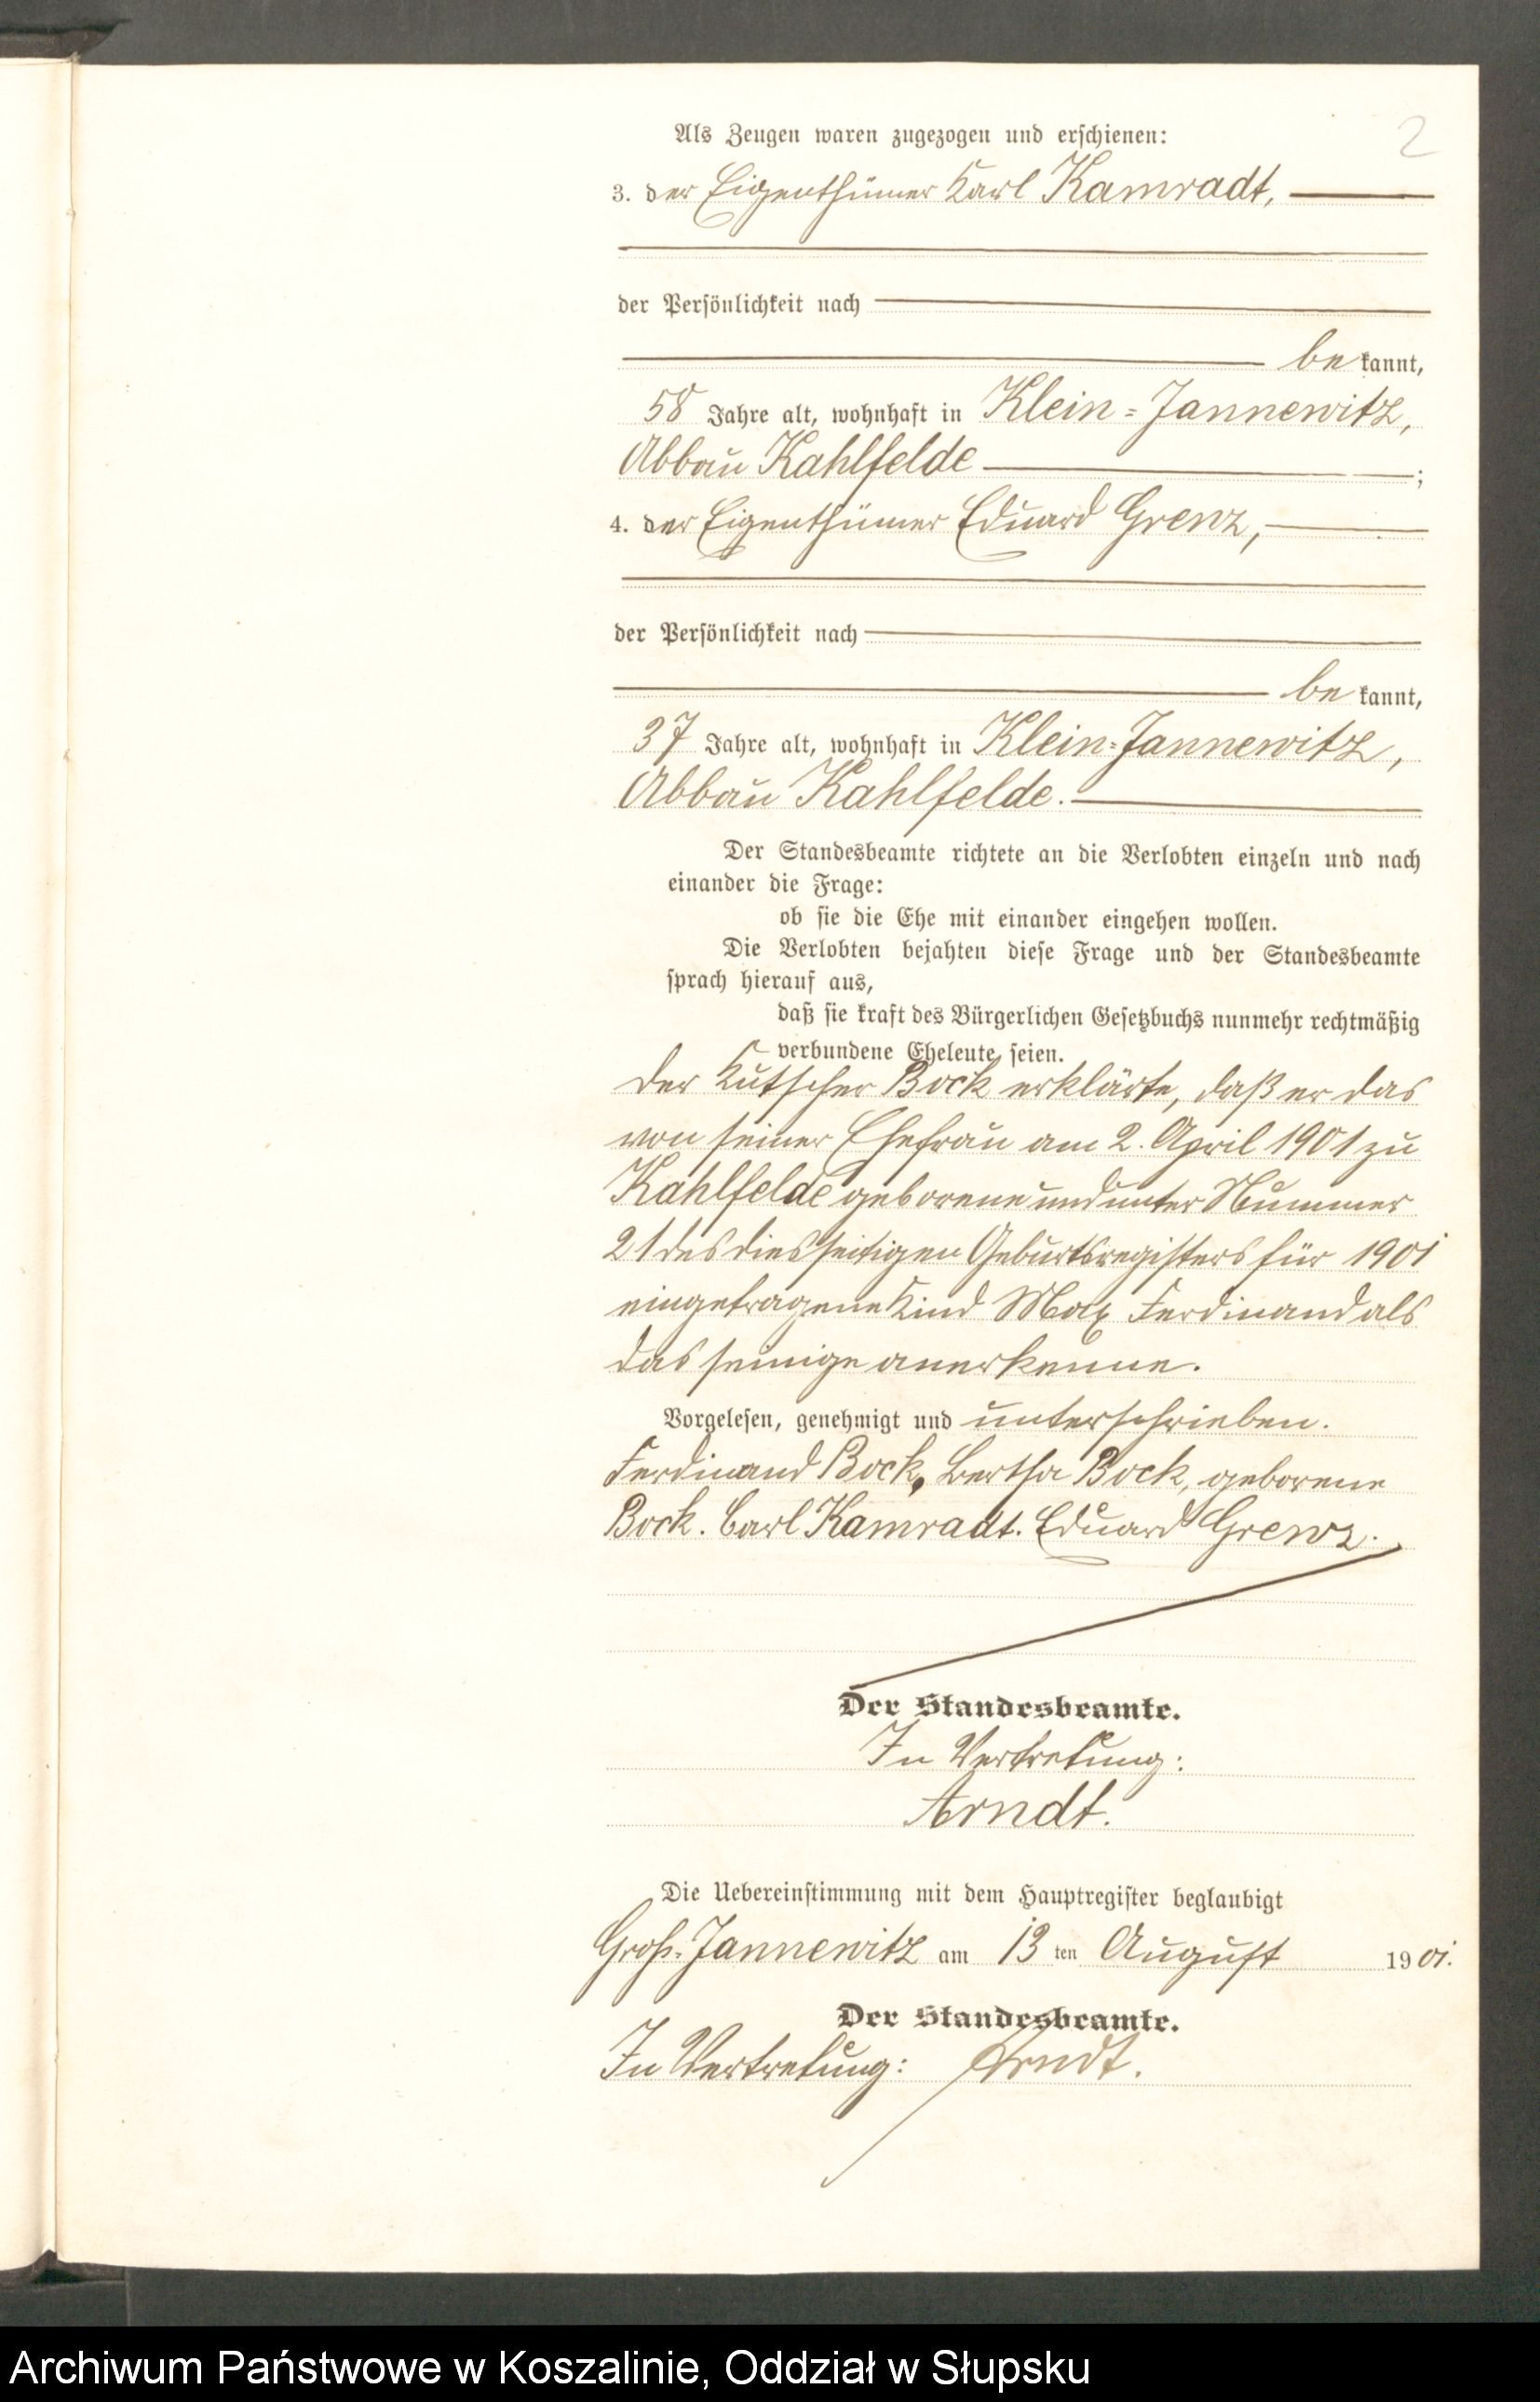 2
Als Zeugen waren zugezogen und erschienen:
3. der Eigenthümer Karl Kamradt,
der Persönlichkeit nach
be kannt,
58 Jahre alt, wohnhaft in Klein-Jannewitz,
Abbau Kahlfelde ;
4. der Eigenthümer Eduard Grenz,
der Persönlichkeit nach
be kannt,
37 Jahre alt, wohnhaft in Klein-Jannewitz,
Abbau Kahlfelde.
Der Standesbeamte richtete an die Verlobten einzeln und nach
einander die Frage:
ob sie die Ehe mit einander eingehen wollen.
Die Verlobten bejahten diese Frage und der Standesbeamte
sprach hierauf aus,
daß sie kraft des Bürgerlichen Gesetzbuchs nunmehr rechtmäßig
verbundene Eheleute seien.
Der Kutscher Bock erklärte, daß er das
von seiner Ehefrau am 2. April 1901 zu
Kahlfelde geborene und unter Nummer
21 des diesseitigen Geburtsregisters für 1901
eingetragene Kind Max Ferdinand als
das seinige anerkenne.
Vorgelesen, genehmigt und unterschrieben.
Ferdinand Bock, Bertha Bock, geborene
Bock. Carl Kamradt. Eduard Grenz.
Der Standesbeamte.
In Vertretung:
Arndt.
Die Uebereinstimmung mit dem Hauptregister beglaubigt
Groß-Jannewitz am 13 ten August 1901.
Der Standesbeamte.
In Vertretung: Arndt.
Archiwum Państwowe w Koszalinie, Oddział w Słupsku